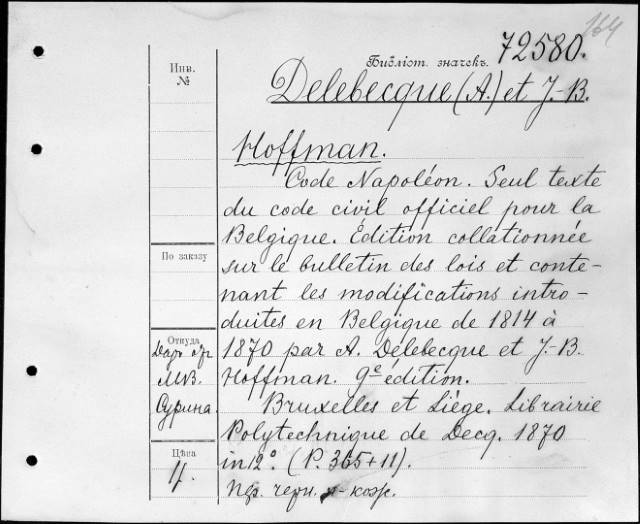 164
72580.
Библіот. значекъ.
Инв.
№
Delebecque (A.) et J.-B.
Hoffman.
Code Napoléon. Seul texte
du code civil officiel pour la
Belgique. Édition collationnée
По заказу
sur le bulletin des lois et conte-
nant les modifications intro-
duites en Belgique de 1814 à
Откуда
Даръ
1870 par A. Delebecque et J.-B.
М.В.
Hoffman. 9e édition.
Сурина.
Bruxelles et Liége. Librairie
Polytechnique de Decq. 1870
Цѣна
in 12°. (P. 365+11).
Пер. черн. п-кож.